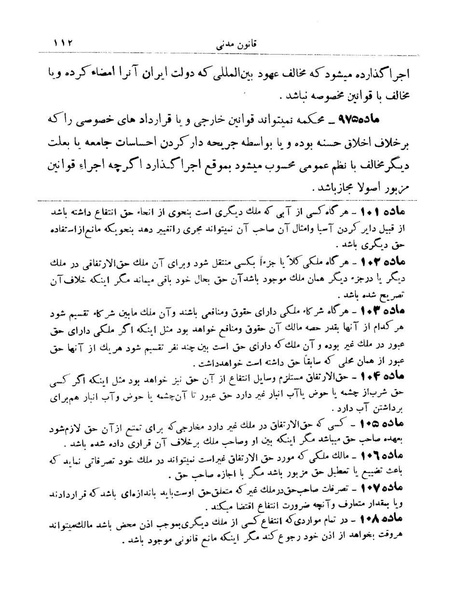 قانون مدنی ۱۱۲
اجرا گذارده میشود که مخالف عهود بین‌المللی که دولت ایران آنرا امضاء کرده و یا
مخالف با قوانین مخصوصه نباشد .
ماده ۹۷۵ - محکمه نمیتواند قوانین خارجی و یا قرارداد های خصوصی را که
برخلاف اخلاق حسنه بوده و یا بواسطه جریحه دار کردن احساسات جامعه یا بعلت
دیگر مخالف با نظم عمومی محسوب میشود بموقع اجرا گذارد اگر چه اجراء قوانین
مزبور اصولا مجاز باشد .
ماده ۱۰۱ - هر گاه کسی از آبی که ملك دیگری است بنحوی از انحاء حق انتفاع داشته باشد
از قبیل دایر کردن آسیا و امثال آن صاحب آن نمیتواند مجری را تغییر دهد بنحویکه مانع از استفاده
حق دیگری باشد .
ماده ۱۰۲ - هر گاه ملکی کلاً یا جزءاً بکسی منتقل شود و برای آن ملك حق‌الارتفاقی در ملك
دیگر یا در جزء دیگر همان ملك موجود باشد آن حق بحال خود باقی میماند مگر اینکه خلاف آن
تصریح شده باشد .
ماده ۱۰۳ - هر گاه شرکاء ملکی دارای حقوق و منافعی باشند و آن ملك مابین شرکاء تقسیم شود
هر کدام از آنها بقدر حصه مالك آن حقوق و منافع خواهد بود مثل اینکه اگر ملکی دارای حق
عبور در ملك غیر بوده و آن ملك که دارای حق است بین چند نفر تقسیم شود هر یك از آنها حق
عبور از همان محلی که سابقاً حق داشته است خواهد داشت .
ماده ۱۰۴ - حق‌الارتفاق مستلزم وسایل انتفاع از آن حق نیز خواهد بود مثل اینکه اگر کسی
حق شرب از چشمه یا حوض یا آب انبار غیر دارد حق عبور تا آن چشمه یا حوض و آب انبار هم برای
برداشتن آب دارد .
ماده ۱۰۵ - کسی که حق‌الارتفاق در ملك غیر دارد مخارجی که برای تمتع از آن حق لازم شود
بعهده صاحب حق میباشد مگر اینکه بین او و صاحب ملك برخلاف آن قراری داده شده باشد .
ماده ۱۰۶ - مالك ملکی که مورد حق الارتفاق غیر است نمیتواند در ملك خود تصرفاتی نماید که
باعث تضییع یا تعطیل حق مزبور باشد مگر با اجازه صاحب حق .
ماده ۱۰۷ - تصرفات صاحب حق در ملك غیر که متعلق حق اوست باید باندازه‌ای باشد که قرار دادند
و یا بمقدار متعارف و آنچه ضرورت انتفاع اقتضا میکند .
ماده ۱۰۸ - در تمام مواردی که انتفاع کسی از ملك دیگری بموجب اذن محض باشد مالك میتواند
هر وقت بخواهد از اذن خود رجوع کند مگر اینکه مانع قانونی موجود باشد .